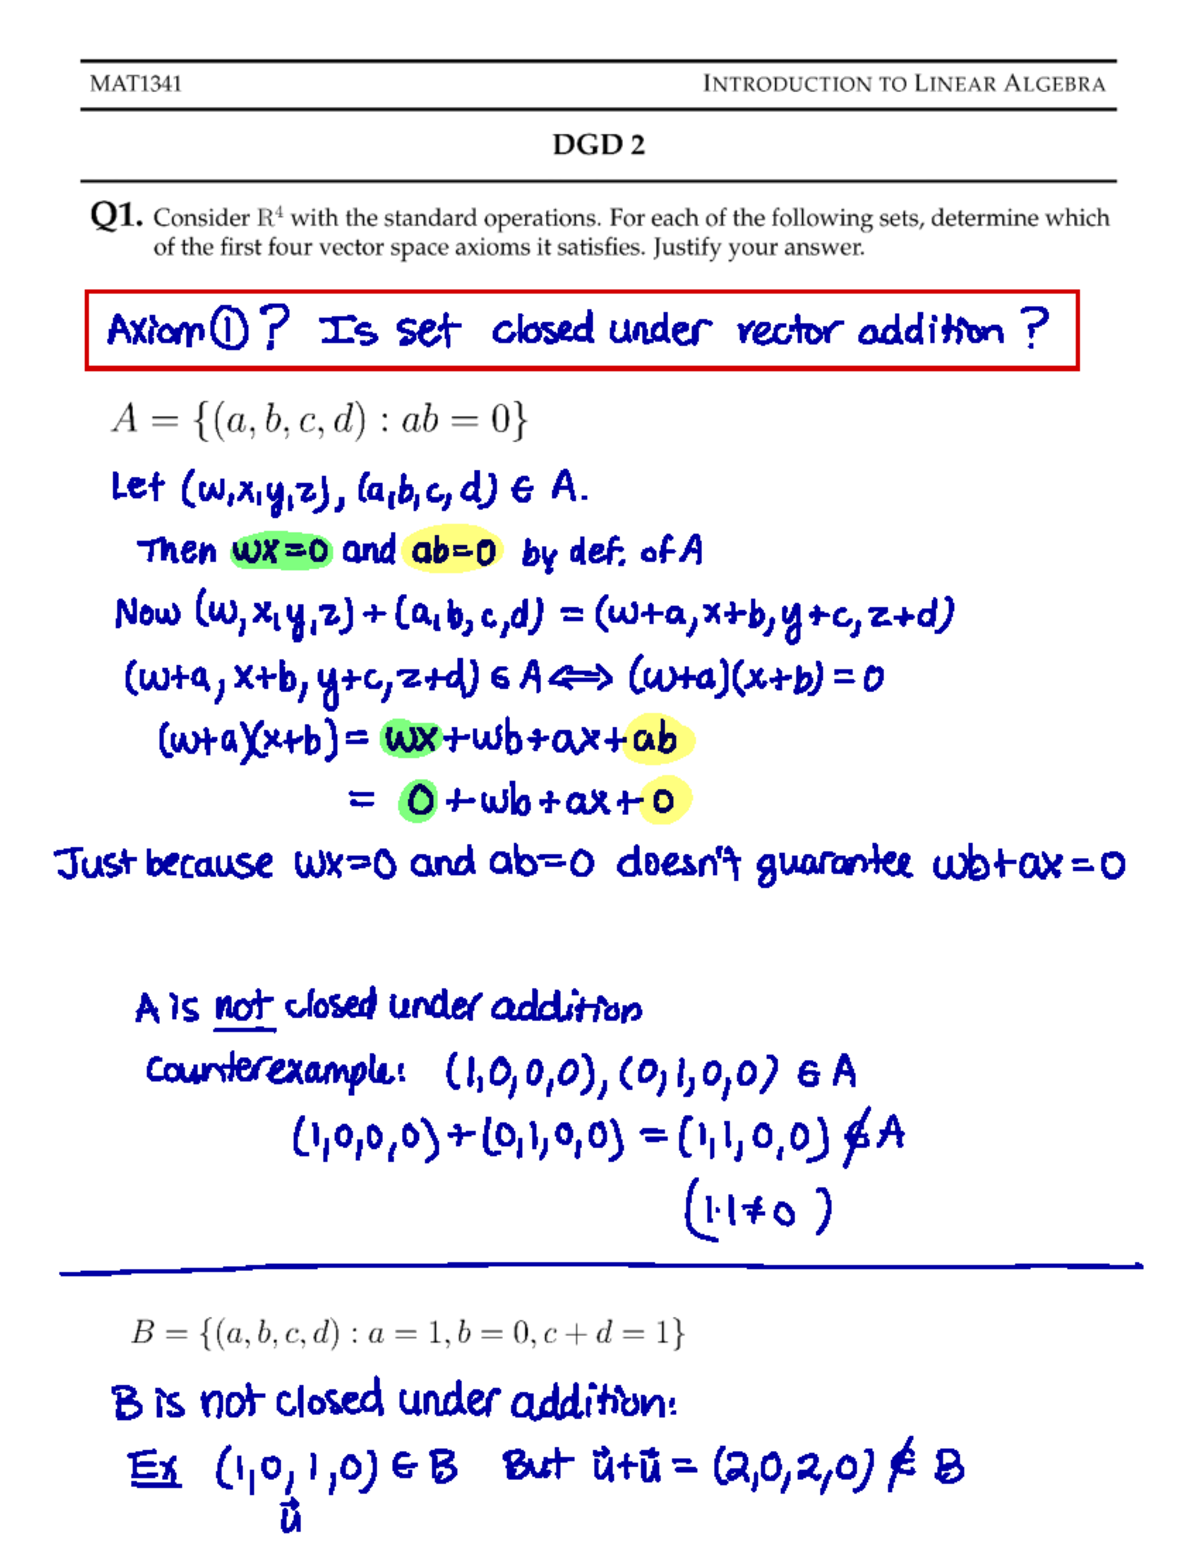 MAT1341 INTRODUCTION TO LINEAR ALGEBRA
DGD 2
Q1. Consider ℝ⁴ with the standard operations. For each of the following sets, determine which
of the first four vector space axioms it satisfies. Justify your answer.
Axiom ①? Is set closed under vector addition?
A = {(a, b, c, d) : ab = 0}
Let (w,x,y,z), (a,b,c,d) ∈ A.
Then wx=0 and ab=0 by def. of A
Now (w,x,y,z)+(a,b,c,d) = (w+a,x+b,y+c,z+d)
(w+a,x+b,y+c,z+d) ∈ A ⟺ (w+a)(x+b)=0
(w+a)(x+b) = wx+wb+ax+ab
= 0+wb+ax+0
Just because wx=0 and ab=0 doesn't guarantee wb+ax=0
A is not closed under addition
counterexample: (1,0,0,0), (0,1,0,0) ∈ A
(1,0,0,0)+(0,1,0,0) = (1,1,0,0) ∉ A
(1·1≠0)
B = {(a, b, c, d) : a = 1, b = 0, c + d = 1}
B is not closed under addition:
Ex (1,0,1,0) ∈ B But u⃗+u⃗ = (2,0,2,0) ∉ B
u⃗